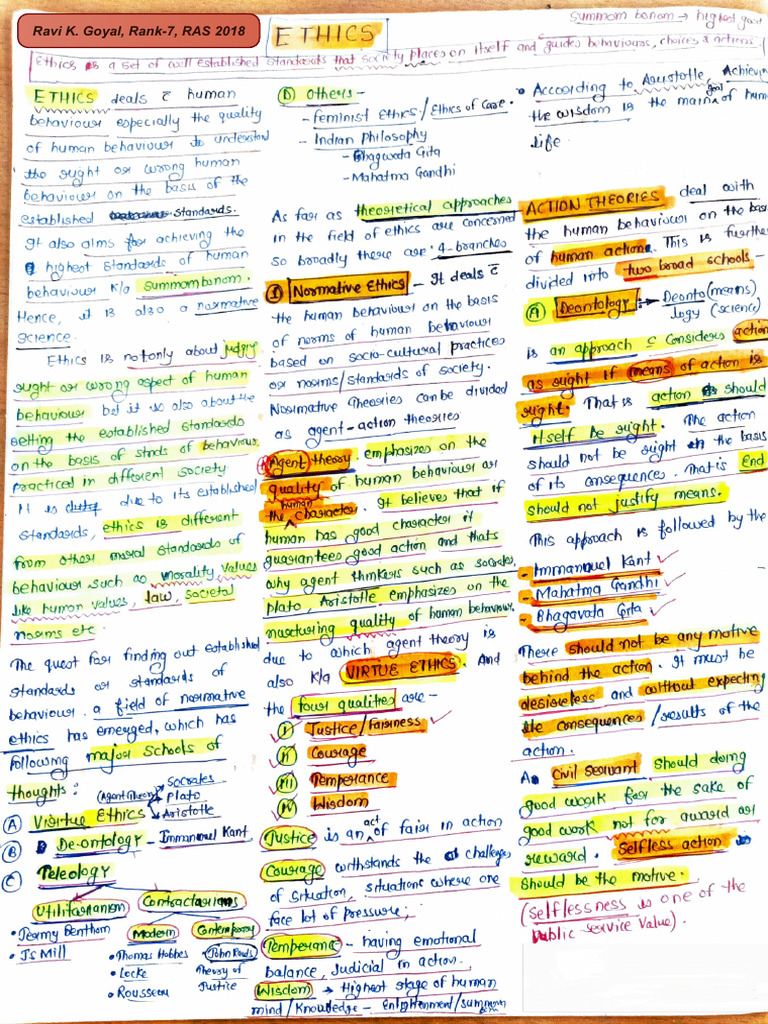 Ravi K. Goyal, Rank-7, RAS 2018
ETHICS
Summom bonom → highest good
Ethics is a set of well established standards that society places on itself and guides behaviours, choices & actions
ETHICS deals c̄ human
behaviour especially the quality
of human behaviour to understand
the right or wrong human
behaviour on the basis of the
established standards.
It also aims for achieving the
highest standards of human
behaviour k/a Summombonom.
Hence, it is also a normative
science.
Ethics is not only about judging
right or wrong aspect of human
behaviour but it is also about the
setting the established standards
on the basis of stnds of behaviour
practiced in different society
It is due to its established
standards, ethics is different
from other moral standards of
behaviour such as morality values
like human values, law, societal
norms etc.
The quest for finding out established
standards or standards of
behaviour. a field of normative
ethics has emerged, which has
following major schools of
thoughts:
(Agent theory)
Socrates
Plato
Aristotle
A Virtue Ethics
B De-ontology - Immanuel Kant
C Teleology
Utilitarianism
Contractarians
• Jeremy Bentham
• JS Mill
Modern
• Thomas Hobbes
• Locke
• Rousseau
Contemporary
John Rawls
Theory of
Justice
D Others -
- feminist Ethics / Ethics of Care.
- Indian Philosophy
- Bhagwada Gita
- Mahatma Gandhi
As far as theoretical approaches
in the field of ethics are concerned
so broadly there are 4-branches
I Normative Ethics - It deals c̄
the human behaviour on the basis
of norms of human behaviour
based on socio-cultural practices
or norms/standards of society.
Normative Theories can be divided
as agent-action theories
A Agent theory emphasizes on the
quality of human behaviour or
the human character. It believes that if
human has good character it
guarantees good action and thats
why agent thinkers such as socrates,
Plato, Aristotle emphasizes on the
nurturing quality of human behaviour.
due to which agent theory is
also k/a VIRTUE ETHICS. And
the four qualities are -
I Justice/Fairness
II Courage
III Temperance
IV Wisdom
Justice is an act of fair in action
Courage withstands the challenges
of situation, situations where one
face lot of pressure;
Temperance - having emotional
balance, judicial in action.
Wisdom → Highest stage of human
mind/knowledge - Enlightenment/summum
• According to Aristotle, Achieving
the wisdom is the main goal of human
life.
ACTION THEORIES deal with
the human behaviour on the basis
of human action. This is further
divided into two broad schools -
A Deontology → Deonto (means)
logy (science)
is an approach c̄ considers action
as right if means of action is
right. That is action should
itself be right. The action
should not be right on the basis
of its consequences. That is End
should not justify means.
This approach is followed by the
- Immanuel Kant
- Mahatma Gandhi
- Bhagavata Gita
There should not be any motive
behind the action. It must be
desireless and without expecting
the consequences / results of the
action.
A Civil Servant should doing
good work for the sake of
good work not for award or
reward. Selfless action is
should be the motive.
(Selflessness is one of the
Public service Value).